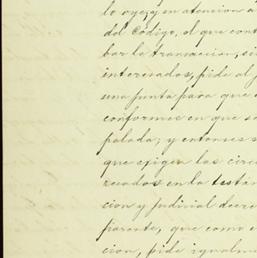 lo oye, y en atencion á
del Código, el que cont
bar la transaccion, si
interesados, pide al j
una junta para que
conformes en que se
palada; y entonces s
que exigen las circ
zeadas en la testa
cion y judicial decre
parente, que como e
cion, pide igualme